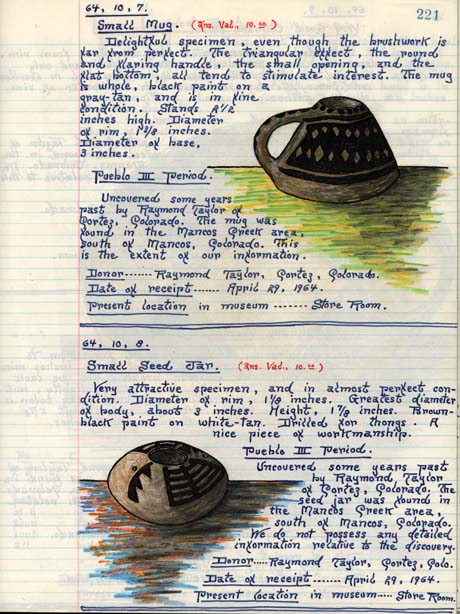 64, 10, 7.
221
Small Mug. (Ins. Val., 10.00)
Delightful specimen, even though the brushwork is
far from perfect. The triangular effect, the round
and flaring handle, the small opening, and the
flat bottom, all tend to stimulate interest. The mug
is whole, black paint on a
gray-tan, and is in fine
condition. Stands 2 1/2
inches high. Diameter
of rim, 1 3/8 inches.
Diameter of base,
3 inches.
Pueblo III Period.
Uncovered some years
past by Raymond Taylor of
Cortez, Colorado. The mug was
found in the Mancos Creek area,
south of Mancos, Colorado. This
is the extent of our information.
Donor------- Raymond Taylor, Cortez, Colorado.
Date of receipt------- April 29, 1964.
Present location in museum ------- Store Room.
64, 10, 8.
Small Seed Jar. (Ins. Val., 10.00)
Very attractive specimen, and in almost perfect con-
dition. Diameter of rim, 1 1/8 inches. Greatest diameter
of body, about 3 inches. Height, 1 7/8 inches. Brown-
black paint on white-tan. Drilled for thongs. A
nice piece of workmanship.
Pueblo III Period.
Uncovered some years past
by Raymond Taylor
of Cortez, Colorado. The
seed jar was found in
the Mancos Creek area,
south of Mancos, Colorado.
We do not possess any detailed
information relative to the discovery.
Donor----- Raymond Taylor, Cortez, Colo.
Date of receipt------- April 29, 1964.
Present location in museum----- Store Room.